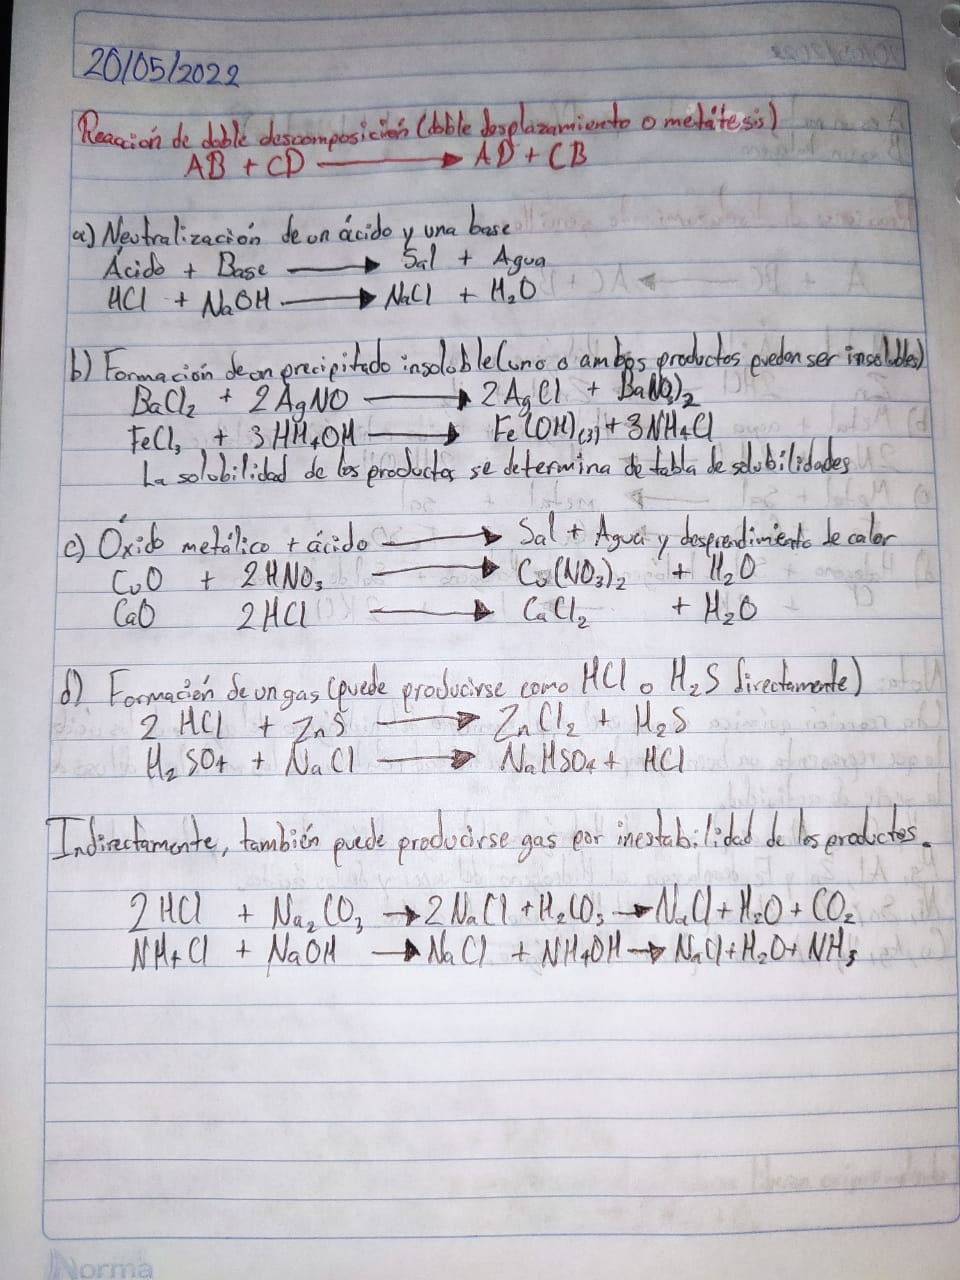 20/05/2022
Reacción de doble descomposición (doble desplazamiento o metátesis)
AB + CD → AD + CB
a) Neutralización de un ácido y una base
Ácido + Base → Sal + Agua
HCl + NaOH → NaCl + H₂O
b) Formación de un precipitado insoluble (uno o ambos productos pueden ser insolubles)
BaCl₂ + 2 AgNO → 2 AgCl + Ba(NO₃)₂
FeCl₃ + 3 HH₄OH → Fe(OH)₍₃₎ + 3NH₄Cl
La solubilidad de los productos se determina de tabla de solubilidades
c) Óxido metálico + ácido → Sal + Agua y desprendimiento de calor
CuO + 2HNO₃ → Cu(NO₃)₂ + H₂O
CaO 2HCl → CaCl₂ + H₂O
d) Formación de un gas (puede producirse como HCl o H₂S directamente)
2 HCl + ZnS → ZnCl₂ + H₂S
H₂SO₄ + NaCl → NaHSO₄ + HCl
Indirectamente, también puede producirse gas por inestabilidad de los productos.
2HCl + Na₂CO₃ → 2NaCl + H₂CO₃ → NaCl + H₂O + CO₂
NH₄Cl + NaOH → NaCl + NH₄OH → NaCl + H₂O + NH₃
Norma